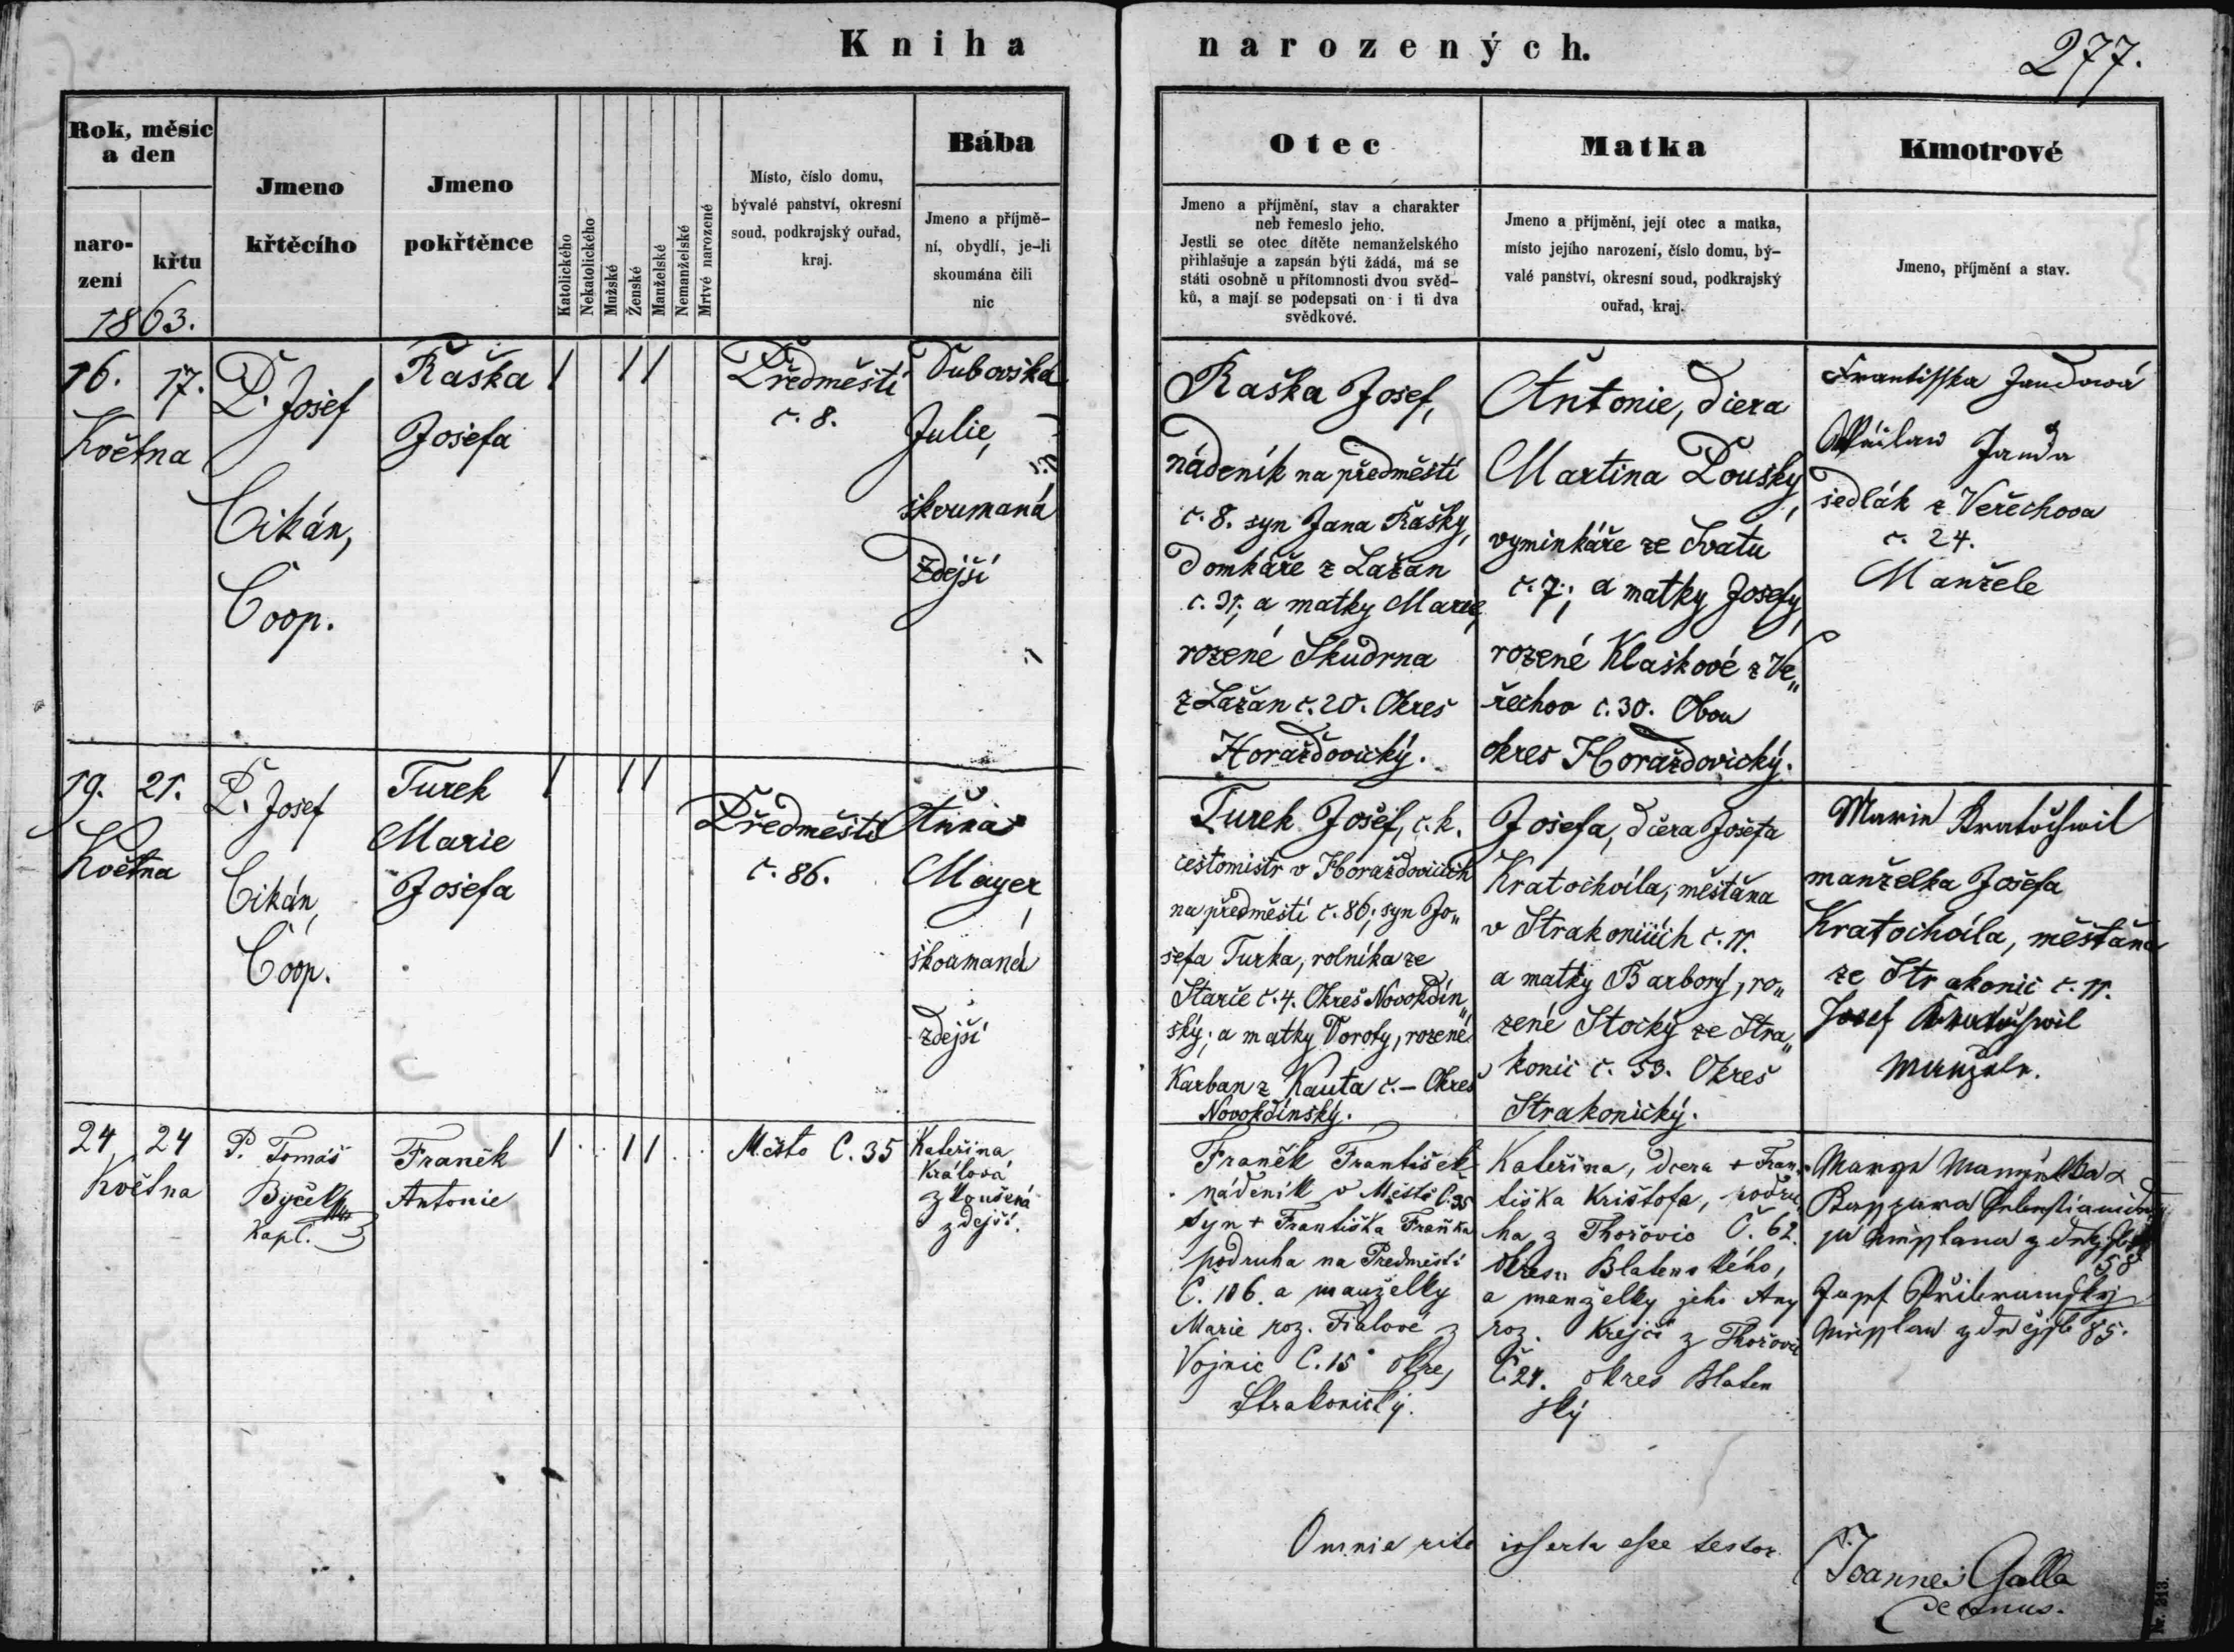 Kniha narozených.
277.
Rok, měsíc
a den
naro-
zení
křtu
1863.
Jmeno
křtěcího
Jmeno
pokřtěnce
Katolického
Nekatolického
Mužské
Ženské
Manželské
Nemanželské
Mrtvé narozené
Místo, číslo domu,
bývalé panství, okresní
soud, podkrajský ouřad,
kraj.
Bába
Jmeno a příjmě-
ní, obydlí, je-li
skoumána čili
nic
Otec
Jmeno a příjmění, stav a charakter
neb řemeslo jeho.
Jestli se otec dítěte nemanželského
přihlašuje a zapsán býti žádá, má se
státi osobně u přítomnosti dvou svěd-
ků, a mají se podepsati on i ti dva
svědkové.
Matka
Jmeno a příjmění, její otec a matka,
místo jejího narození, číslo domu, bý-
valé panství, okresní soud, podkrajský
ouřad, kraj.
Kmotrové
Jmeno, příjmění a stav.
16. 17.
Května
P. Josef
Cikán,
Coop.
Raška
Josefa
Předměstí
č. 8.
Dubovská
Julie,
skoumaná
zdejší
Raška Josef,
nádeník na předměstí
č. 8. syn Jana Rašky,
domkáře z Lažan
č. 31; a matky Marie,
rozené Skudrna
z Lažan č. 20. Okres
Horažďovický.
Antonie, dcera
Martina Loušky,
vyminkáře ze Svatu
č. 7; a matky Josefy,
rozené Klaškové z Ve„
řechov č. 30. Obou
okres Horažďovický.
Frantisska Jandowá
Janda
sedlák z Veřechova
č. 24.
Manžele
19. 21.
Května
P. Josef
Cikán,
Coop.
Turek
Marie
Josefa
Předměstí
č. 86.
Anna
Mayer,
skoumaná
zdejší
Turek Josef, c. k.
cestomistr v Horažďovicích
na předměstí č. 86; syn Jo„
sefa Turka, rolníka ze
Starče č. 4. Okres Novokdín„
ský; a matky Doroty, rozené
Karban z Kauta č. – Okres
Novokdínský.
Josefa, dcera Josefa
Kratochvíla, měšťána
v Strakonicích č. 11.
a matky Barbory, ro„
zené Stocký ze Stra„
konic č. 53. Okres
Strakonický.
Marie Kratochwil
manželka Josefa
Kratochvíla, měšťana
ze Strakonic č. 11.
Josef Kratochwil
24 24
Května
P. Tomáš
Kapl.
Franěk
Antonie
1 11
Město Č. 35
Kateřina
Králová
zkoušená
zdejší.
Franěk František
nádeník v Městě č. 35
syn + Františka Fraňka
podruha na Předměstí
Č. 106. a manželky
Marie roz. Fialové z
Vojnic Č. 15 okres
Strakonický.
Kateřina, dcera + Fran„
tiska Krištofa, podru„
ha z Thořovic Č. 62.
okresu Blatenského,
a manželky jeho Any
roz. Krejčí z Thořovic
Č 24. okres Blaten
ský
58
85.
Omnia rite inserta esse testor
Joannes Galla
Decanus.
Nr. 213.